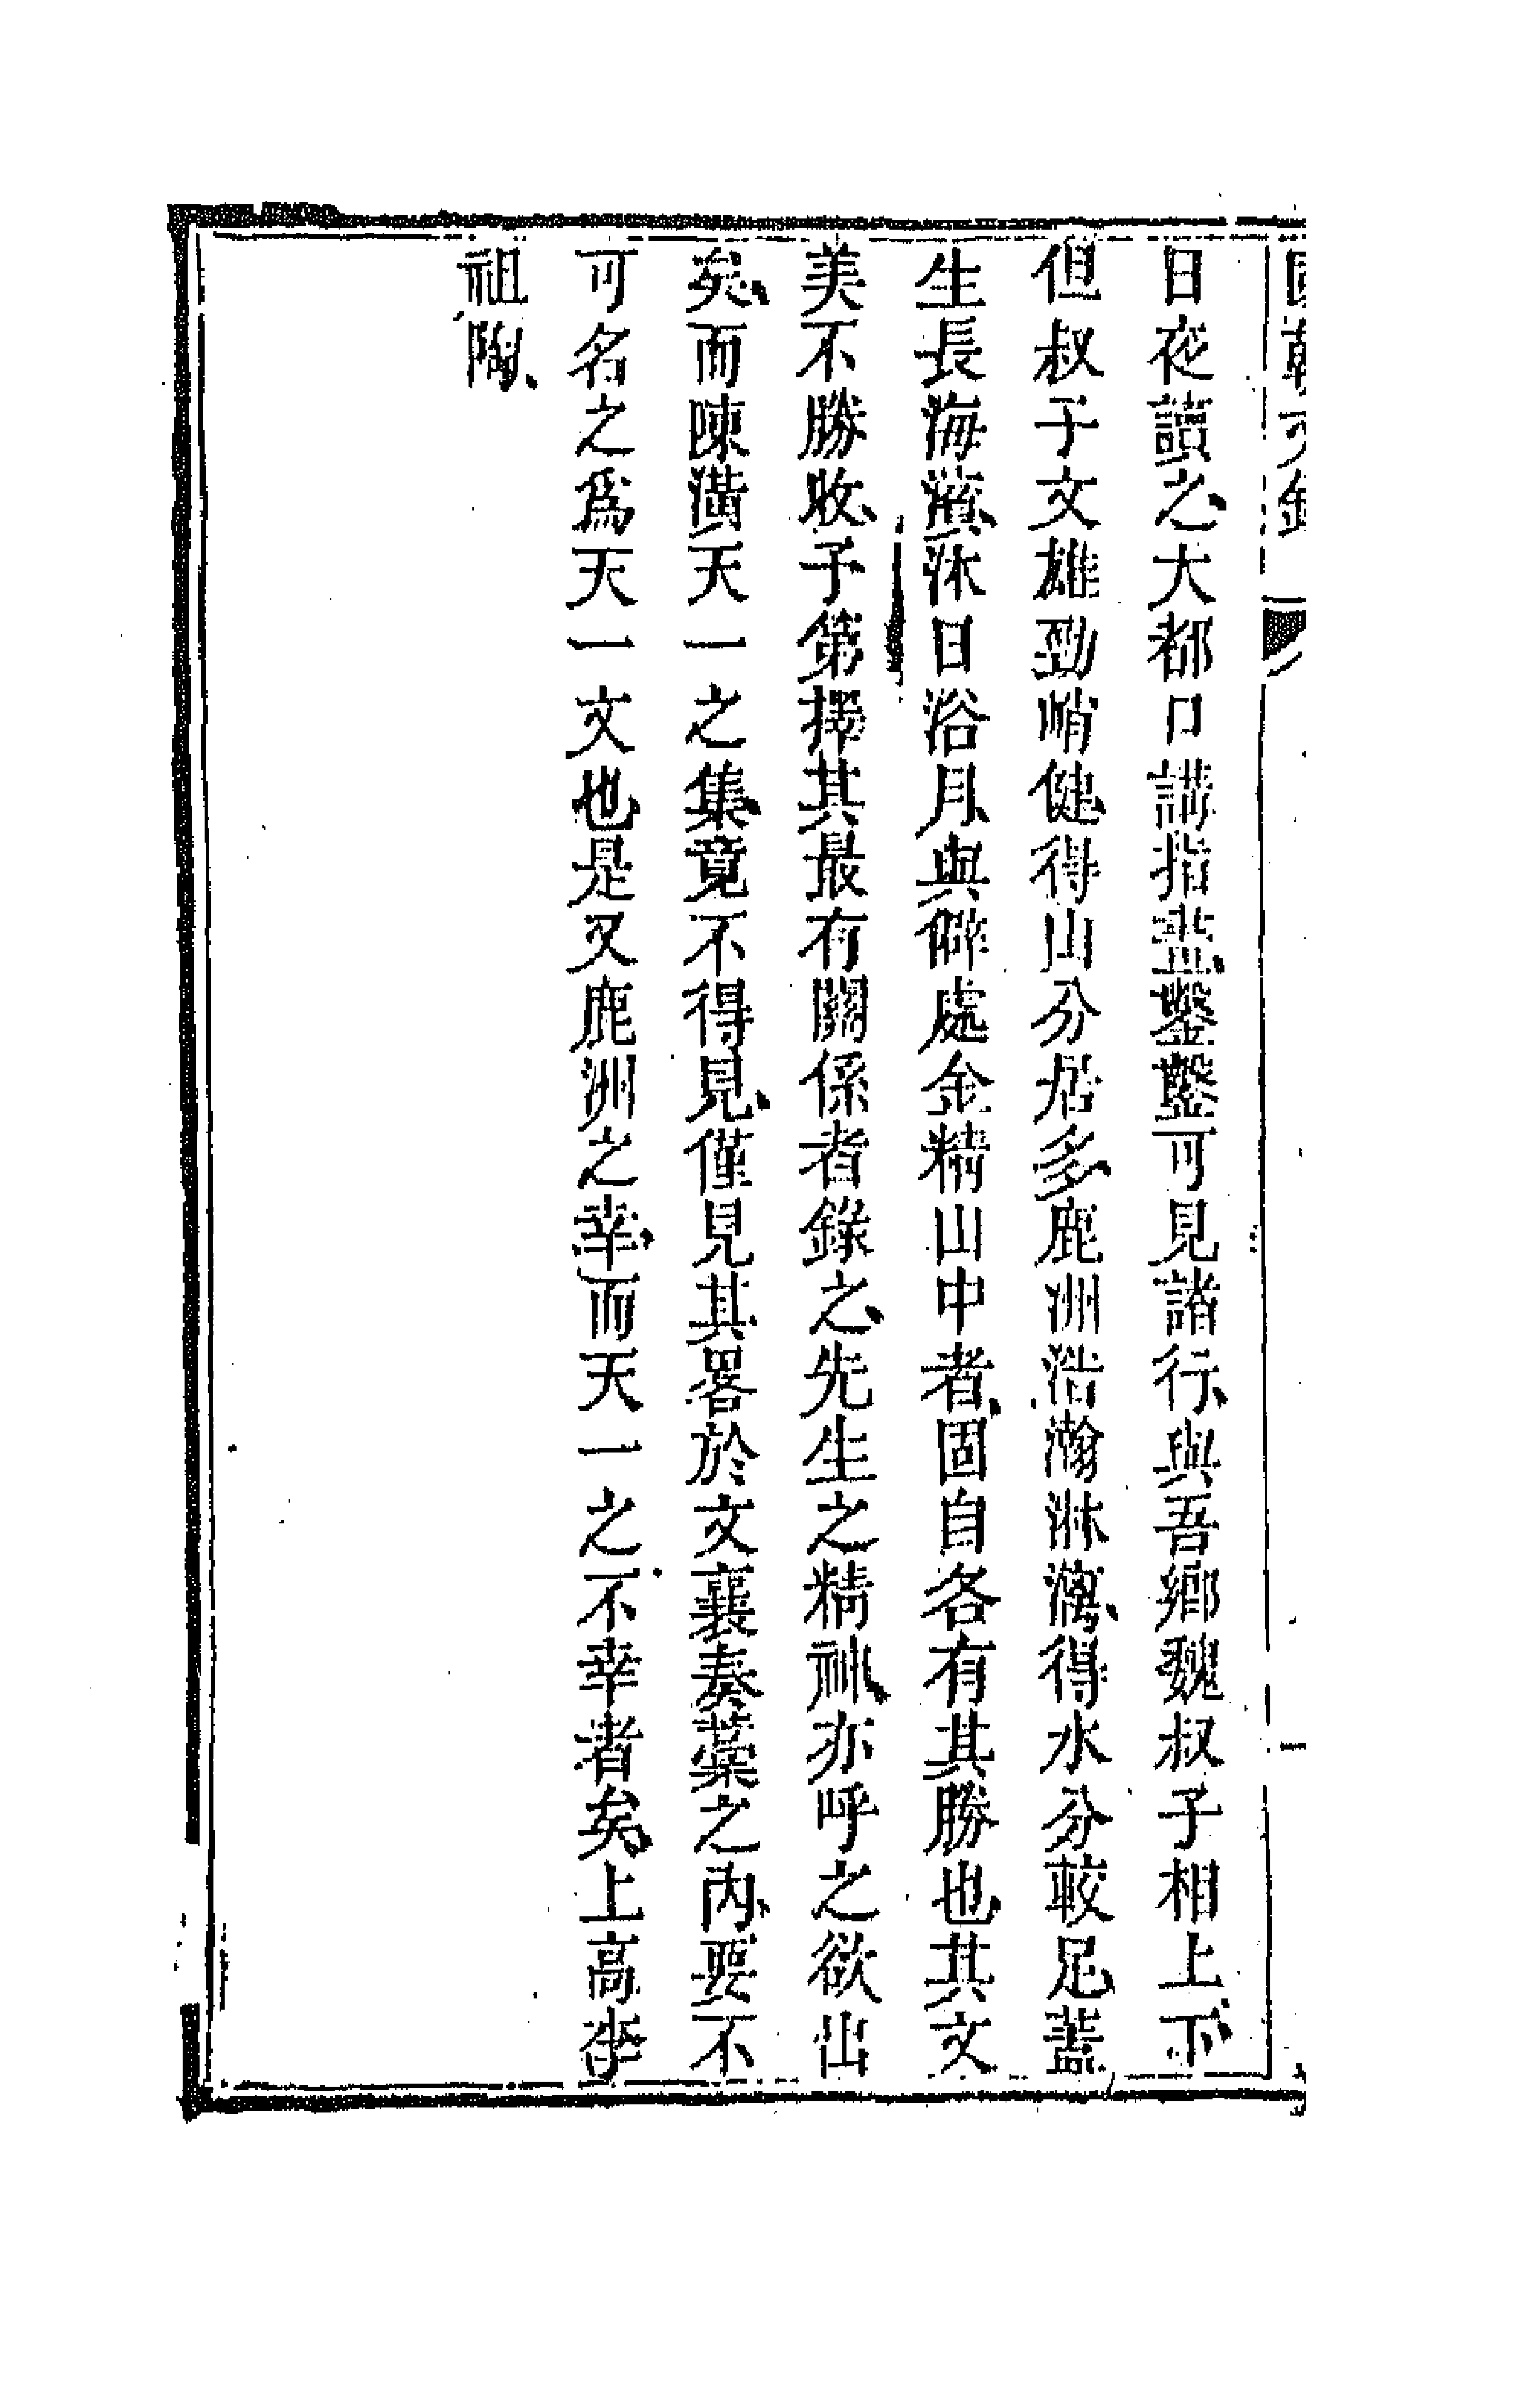 國朝文錄 一
日夜讀之、大都口講指畫、鑿鑿可見諸行、與吾鄉魏叔子相上下、
但叔子文雄勁峭健、得山分居多、鹿洲浩瀚淋漓、得水分較足、蓋
生長海濱、沐日浴月、與僻處金精山中者、固自各有其勝也、其文
美不勝收、予第擇其最有關係者錄之、先生之精神、亦呼之欲出
矣、而陳潢天一之集、竟不得見、僅見其畧於文襄奏藁之內、要不
可名之爲天一文也是又鹿洲之幸、而天一之不幸者矣、上高李
祖陶、